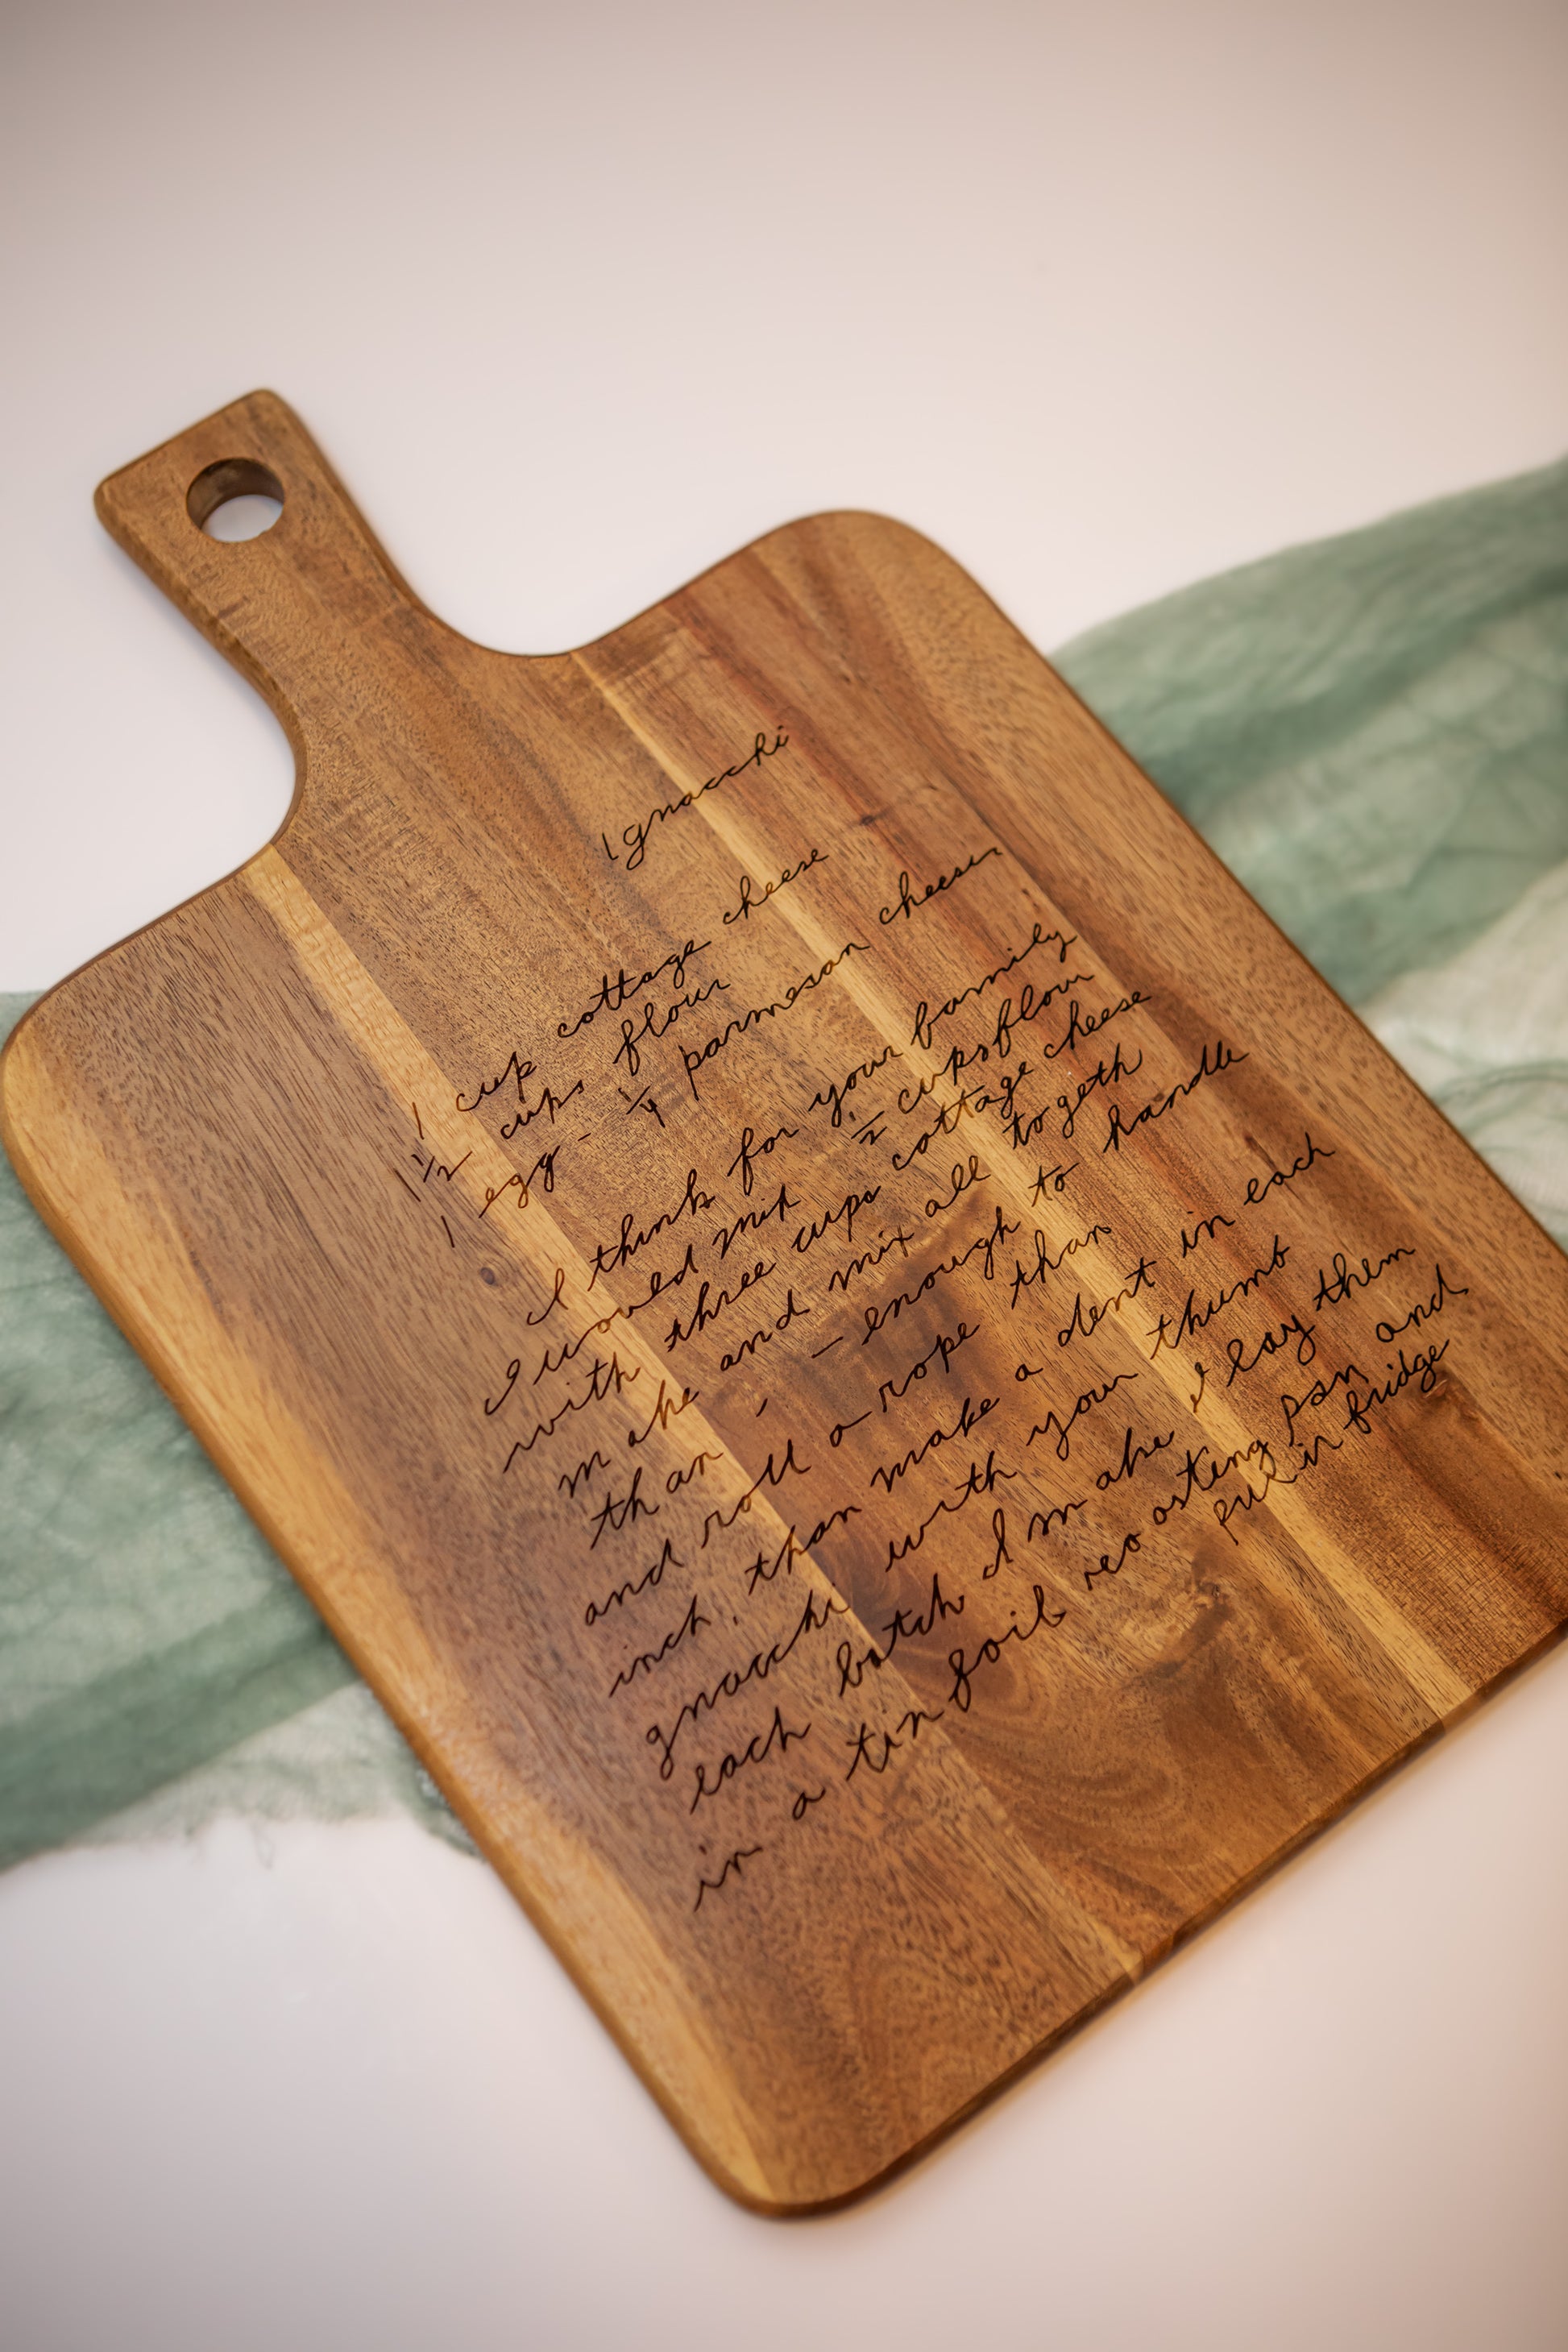 Ignocchi
1 cup cottage cheese
1 1/2 cups flour
1 egg - 1/4 parmesan cheese
I think for your family
I would mix 1/2 cups flour
with three cups cottage cheese
make and mix all togeth
than - - enough to handle
and roll a rope than
inch, than make a dent in each
gnocchi with your thumb
each batch I make I lay them
in a tin foil roosting pan and
put in fridge